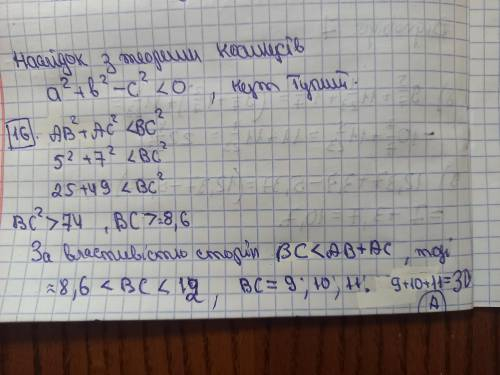 Наслідок з теореми косинусів
a²+b²-c²<0, кут тупий.
16. AB²+AC²<BC²
5²+7²<BC²
25+49<BC²
BC²>74, BC>≈8,6
За властивістю сторін BC<AB+AC, тоді
≈8,6<BC<12, BC=9; 10; 11. 9+10+11=30
А